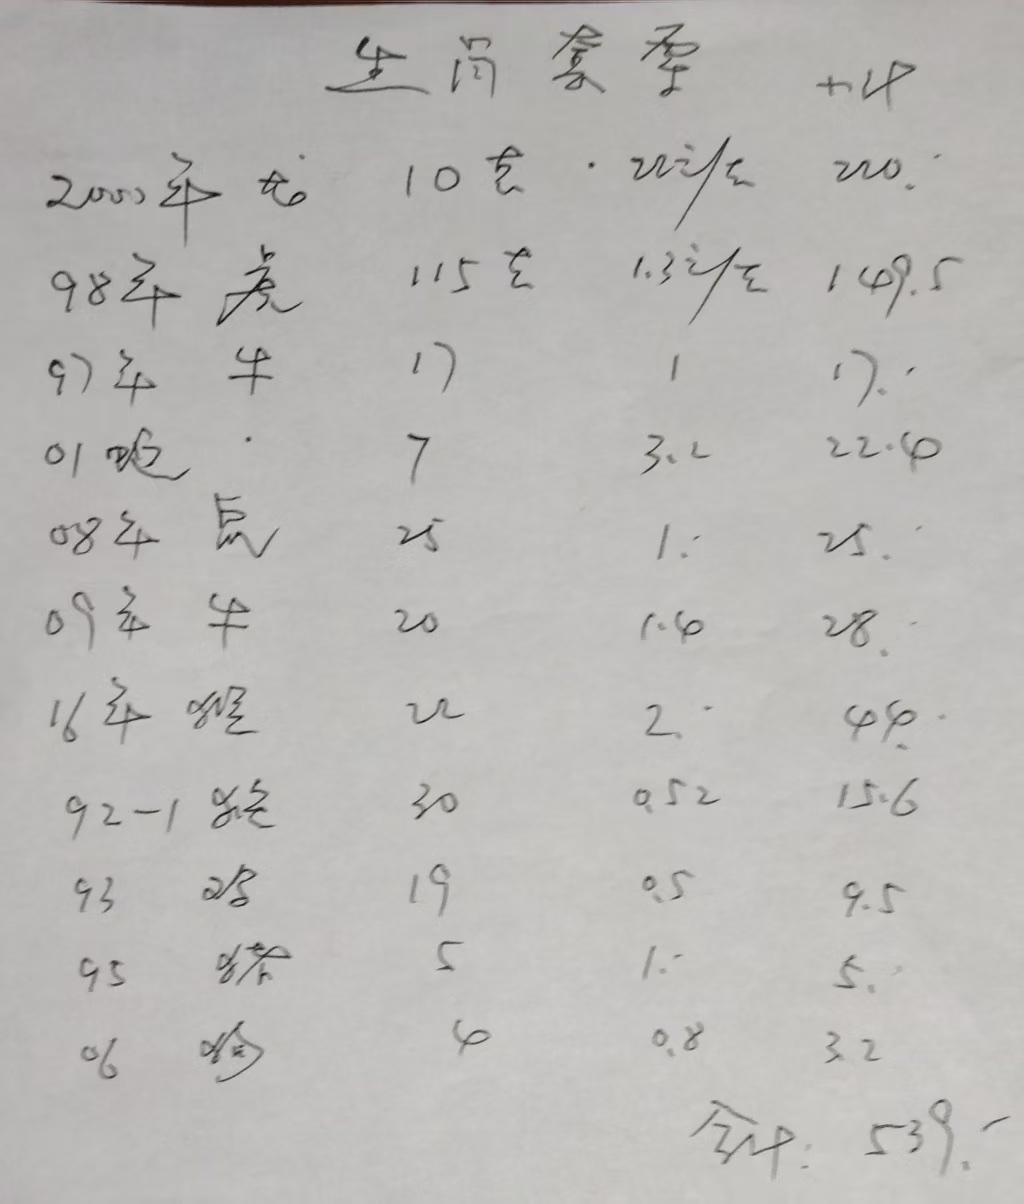 生肖套票 计
2000年 龙 10套 22元/套 220.-
98年 虎 115套 1.3元/套 149.5
97年 牛 17 1 17.-
01 蛇 7 3.2 22.4
08年 鼠 25 1.- 25.-
09年 牛 20 1.4 28.-
16年 猴 22 2.- 44.-
92-1 猴 30 0.52 15.6
93 鸡 19 0.5 9.5
95 猪 5 1.- 5.-
06 狗 4 0.8 3.2
合计: 539.-